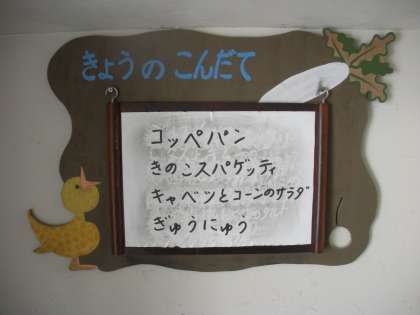 きょうの こんだて
コッペパン
きのこスパゲッティ
キャベツとコーンのサラダ
ぎゅうにゅう